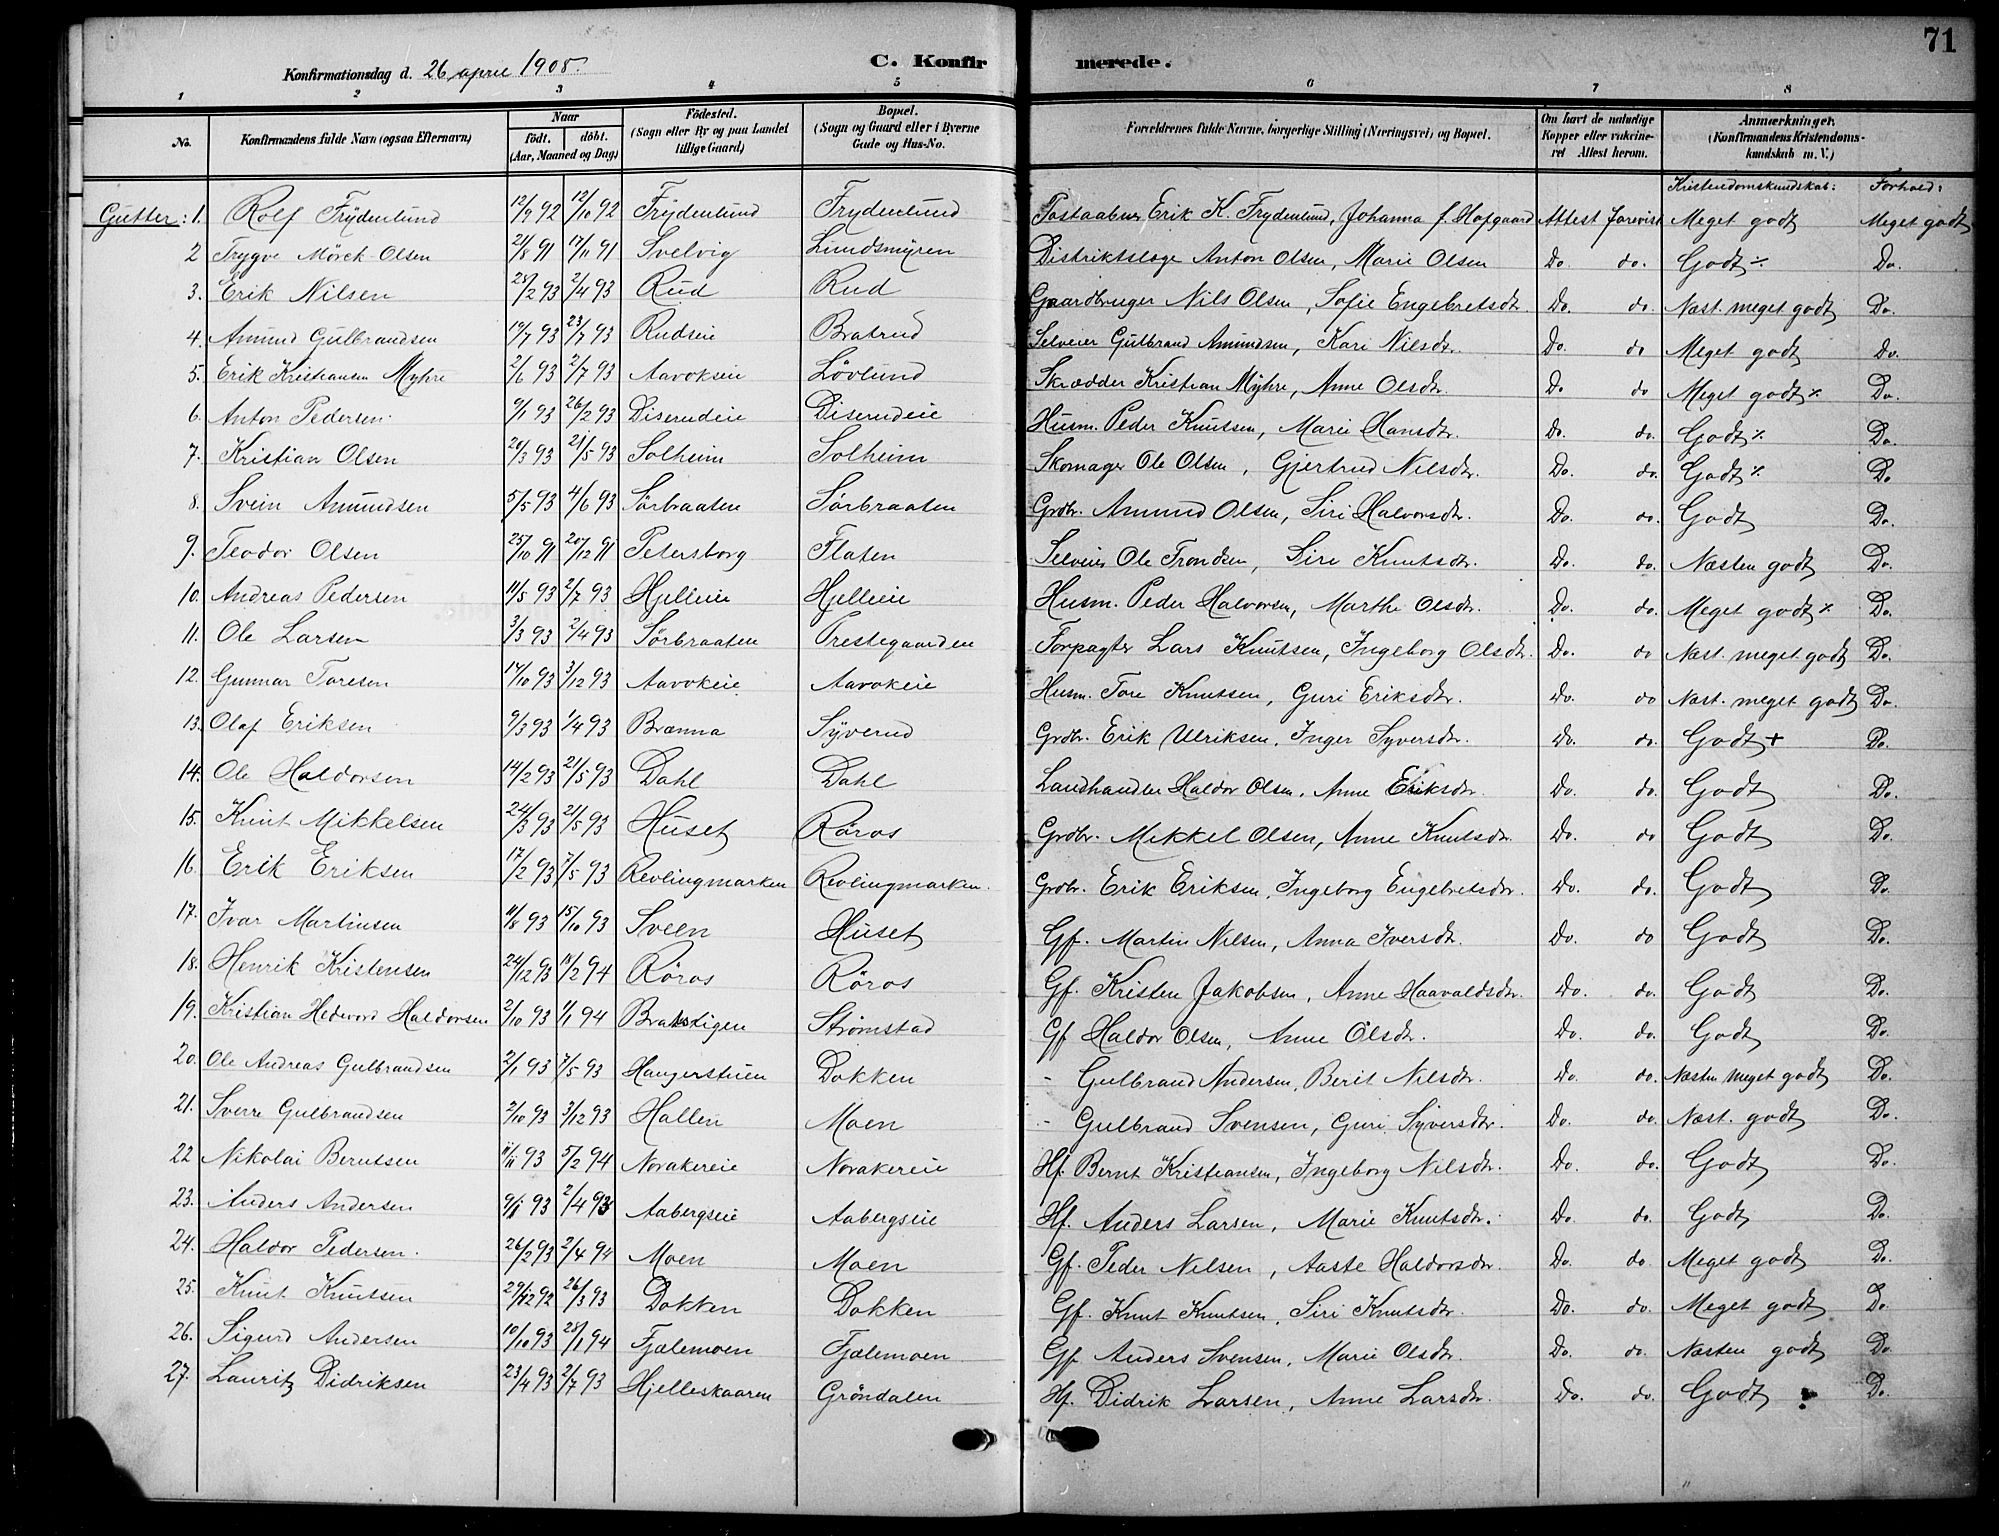 71
Konfirmationsdag d. 26 april 1908.
C. Konfirmerede.
1 2 3 4 5 6 7 8
No. Konfirmandens fulde Navn (ogsaa Efternavn) Naar født. døbt. (Aar, Maaned og Dag) Fødested. (Sogn eller By og paa Landet tillige Gaard) Bopæl. (Sogn og Gaard eller i Byerne Gade og Hus-No. Forældrenes fulde Navne, borgerlige Stilling (Næringsvei) og Bopæl. Om havt de naturlige Kopper eller vakcineret Attest herom. Anmærkninger. (Konfirmandens Kristendomskundskab m. V.)
Kristendomskundskab: Forhold:
Gutter: 1. Rolf Frydenlund 12/9 92 12/10 92 Frydenlund Frydenlund Postaabner Erik K. Frydenlund, Johanna f. Hofgaard Attest forevist Meget godt Meget godt
2 Trygve Mörck-Olsen 21/8 91 17/11 91 Svelvig Lundsmyren Distriktslæge Anton Olsen, Marie Olsen Do. do. Godt ٪ Do.
3. Erik Nilsen 28/2 93 2/4 93 Rud Rud Gaardbruger Nils Olsen, Sofie Engebretsdtr. Do. do. Næst. meget godt Do.
4. Amund Gulbrandsen 19/7 93 23/7 93 Rudseie Bratrud Selveier Gulbrand Amundsen, Kari Nilsdtr. Do. do Meget godt Do.
5. Erik Kristiansen Myhre 2/6 93 2/7 93 Aavokseie Lövlund Skrædder Kristian Myhre, Anne Olsdtr. Do do Meget godt ٪ Do.
6. Anton Pedersen. 9/1 93 26/2 93 Diserudeie Diserudeie Husm. Peder Knutsen, Marie Hansdtr. Do. do. Godt ٪ Do.
7. Kristian Olsen 24/3 93 21/5 93 Solheim Solheim Skomager Ole Olsen, Gjertrud Nilsdtr. Do. do. Godt ٪ Do
8. Svein Amundsen 5/5 93 4/6 93 Sørbraaten Sørbraaten Grdbr. Amund Olsen, Siri Halvorsdtr. Do. do. Godt Do.
9. Teodor Olsen 25/10 91 20/12 91 Petersborg Flaten Selveier Ole Trondsen, Siri Knutsdtr. Do. do. Næsten godt Do.
10. Andreas Pedersen 11/5 93 2/7 93 Hjelleie Hjelleie Husm. Peder Halvorsen, Marthe Olsdtr. Do. do. Meget godt ٪ Do.
11. Ole Larsen 3/3 93 2/4 93 Sørbraaten Prestegaarden Forpagter Lars Knutsen, Ingeborg Olsdtr. Do. do Næst. meget godt Do.
12. Gunnar Toresen 14/10 93 3/12 93 Aavokeie Aavokeie Husm. Tore Knutsen, Guri Eriksdtr. Do. do Næst. meget godt Do.
13. Olaf Eriksen 9/3 93 1/4 93 Brænna Syverud Grdbr. Erik Ulriksen, Inger Syversdtr. Do. do. Godt + Do.
14. Ole Haldorsen 14/2 93 21/5 93 Dahl Dahl Landhandler Haldor Olsen, Anne Eriksdtr. Do. do. Godt Do.
15. Knut Mikkelsen 24/3 93 21/5 93 Huset Röros Grdbr. Mikkel Olsen, Anne Knutsdtr. Do. do Godt Do.
16. Erik Eriksen 17/2 93 7/5 93 Revlingmarken Revlingmarken. Grdbr. Erik Eriksen, Ingeborg Engebretsdtr. Do. do. Godt Do.
17. Ivar Martinsen 11/8 93 15/10 93 Sveen Huset Gf. Martin Nilsen, Anna Iversdtr. Do. do Godt Do.
18. Henrik Kristensen 24/12 93 11/2 94 Röros Röros Gf. Kristen Jakobsen, Anne Haavaldsdtr. Do. do. Godt Do.
19. Kristian Hedevord Haldorsen 2/10 93 1/1 94 Brakstigen Strømstad Gf Haldor Olsen, Anne Olsdtr. Do. do. Godt Do.
20. Ole Andreas Gulbrandsen 2/1 93 7/5 93 Haugerstuen Dokken - Gulbrand Andersen, Berit Nilsdtr. Do. do. Næsten meget godt Do.
21. Sverre Gulbrandsen 2/10 93 3/12 93 Hallen Moen - Gulbrand Svensen, Guri Syversdtr. Do. do. Næst. godt Do.
22 Nikolai Berntsen 11/11 93 5/2 94 Norakereie Norakereie Hf. Bernt Kristiansen, Ingeborg Nilsdtr. Do. do. Godt Do.
23. Anders Andersen 9/1 93 2/4 93 Aabergseie Aabergseie Hf. Anders Larsen, Marie Knutsdtr. Do. do. Godt Do.
24. Haldor Pedersen. 26/2 93 2/4 94 Moen Moen Gf. Peder Nilsen, Aaste Haldorsdtr. Do. do. Meget godt Do.
25. Knut Knutsen 29/12 92 26/3 93 Dokken Dokken Gf. Knut Knutsen, Siri Knutsdtr. Do. do. Meget godt Do.
26. Sigurd Andersen 10/10 93 28/1 94 Fjælemoen Fjælemoen Gf. Anders Svensen, Marie Olsdtr. Do. do. Næsten godt Do.
27. Lauritz Didriksen 23/4 93 2/7 93 Hjelleskaaren Gröndalen Hf. Didrik Larsen, Anne Larsdtr. Do. do. Godt Do.